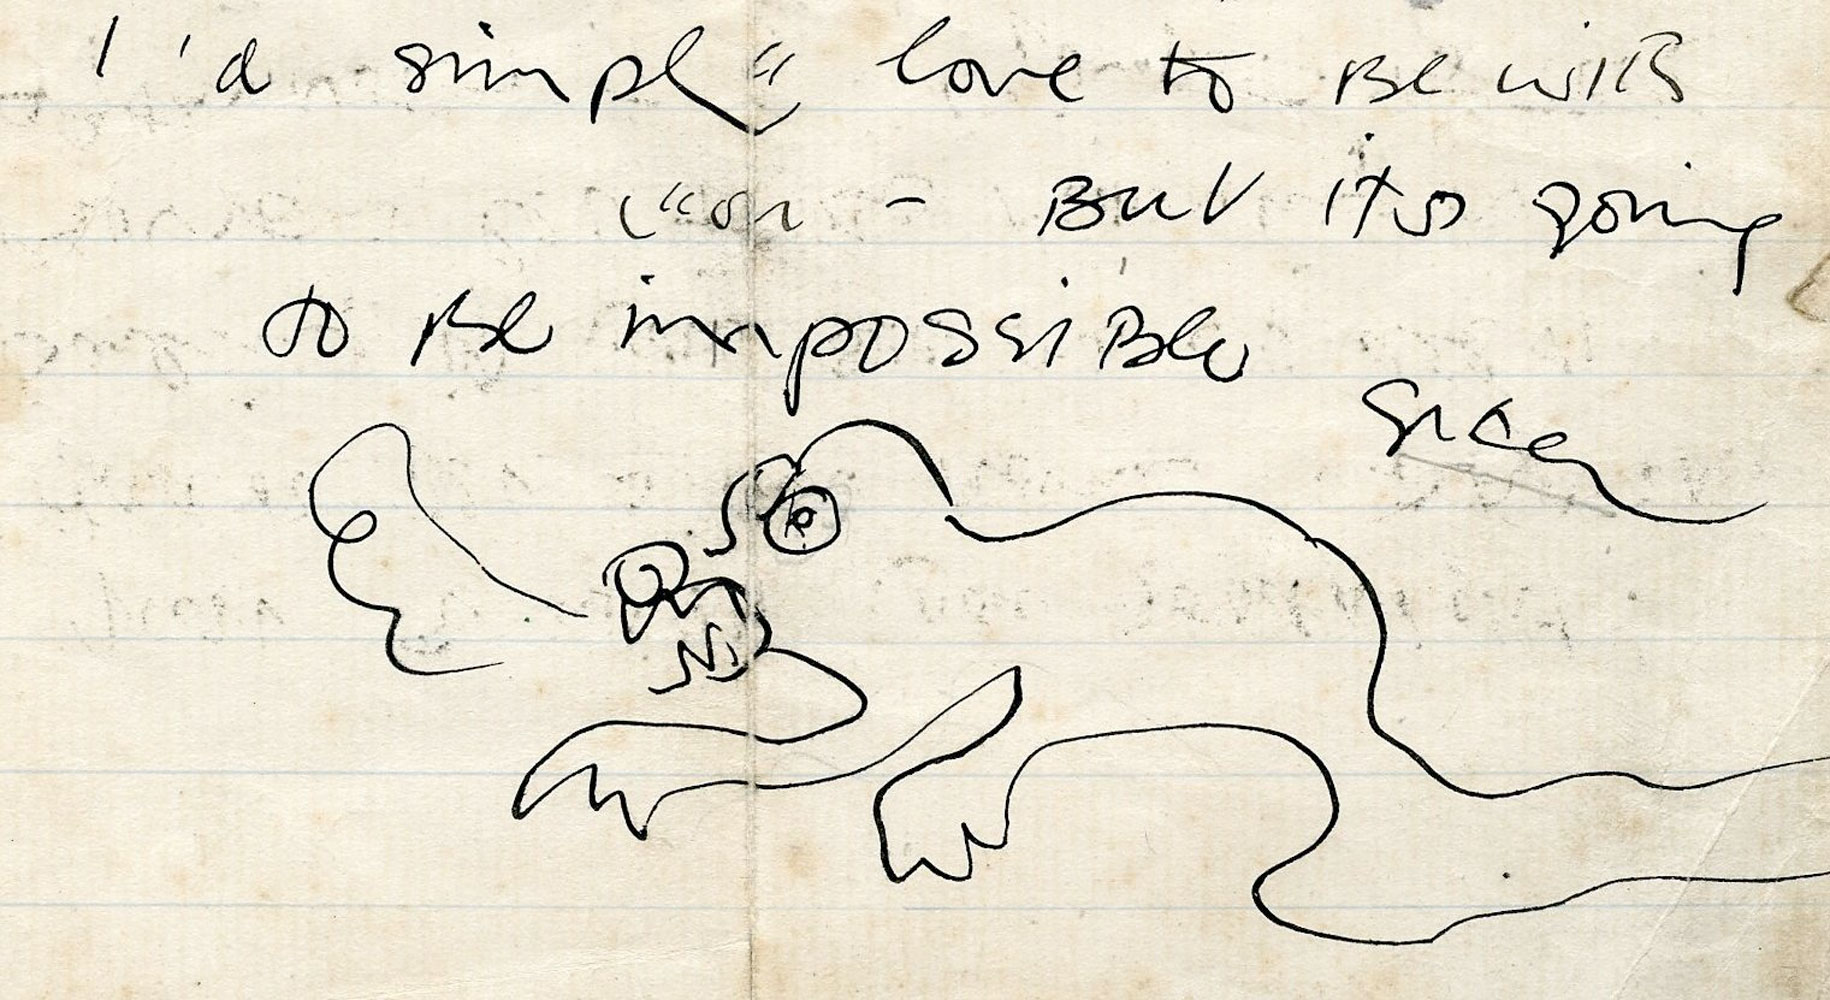 I'd simply love to Be with
you - But its going
to Be impossible